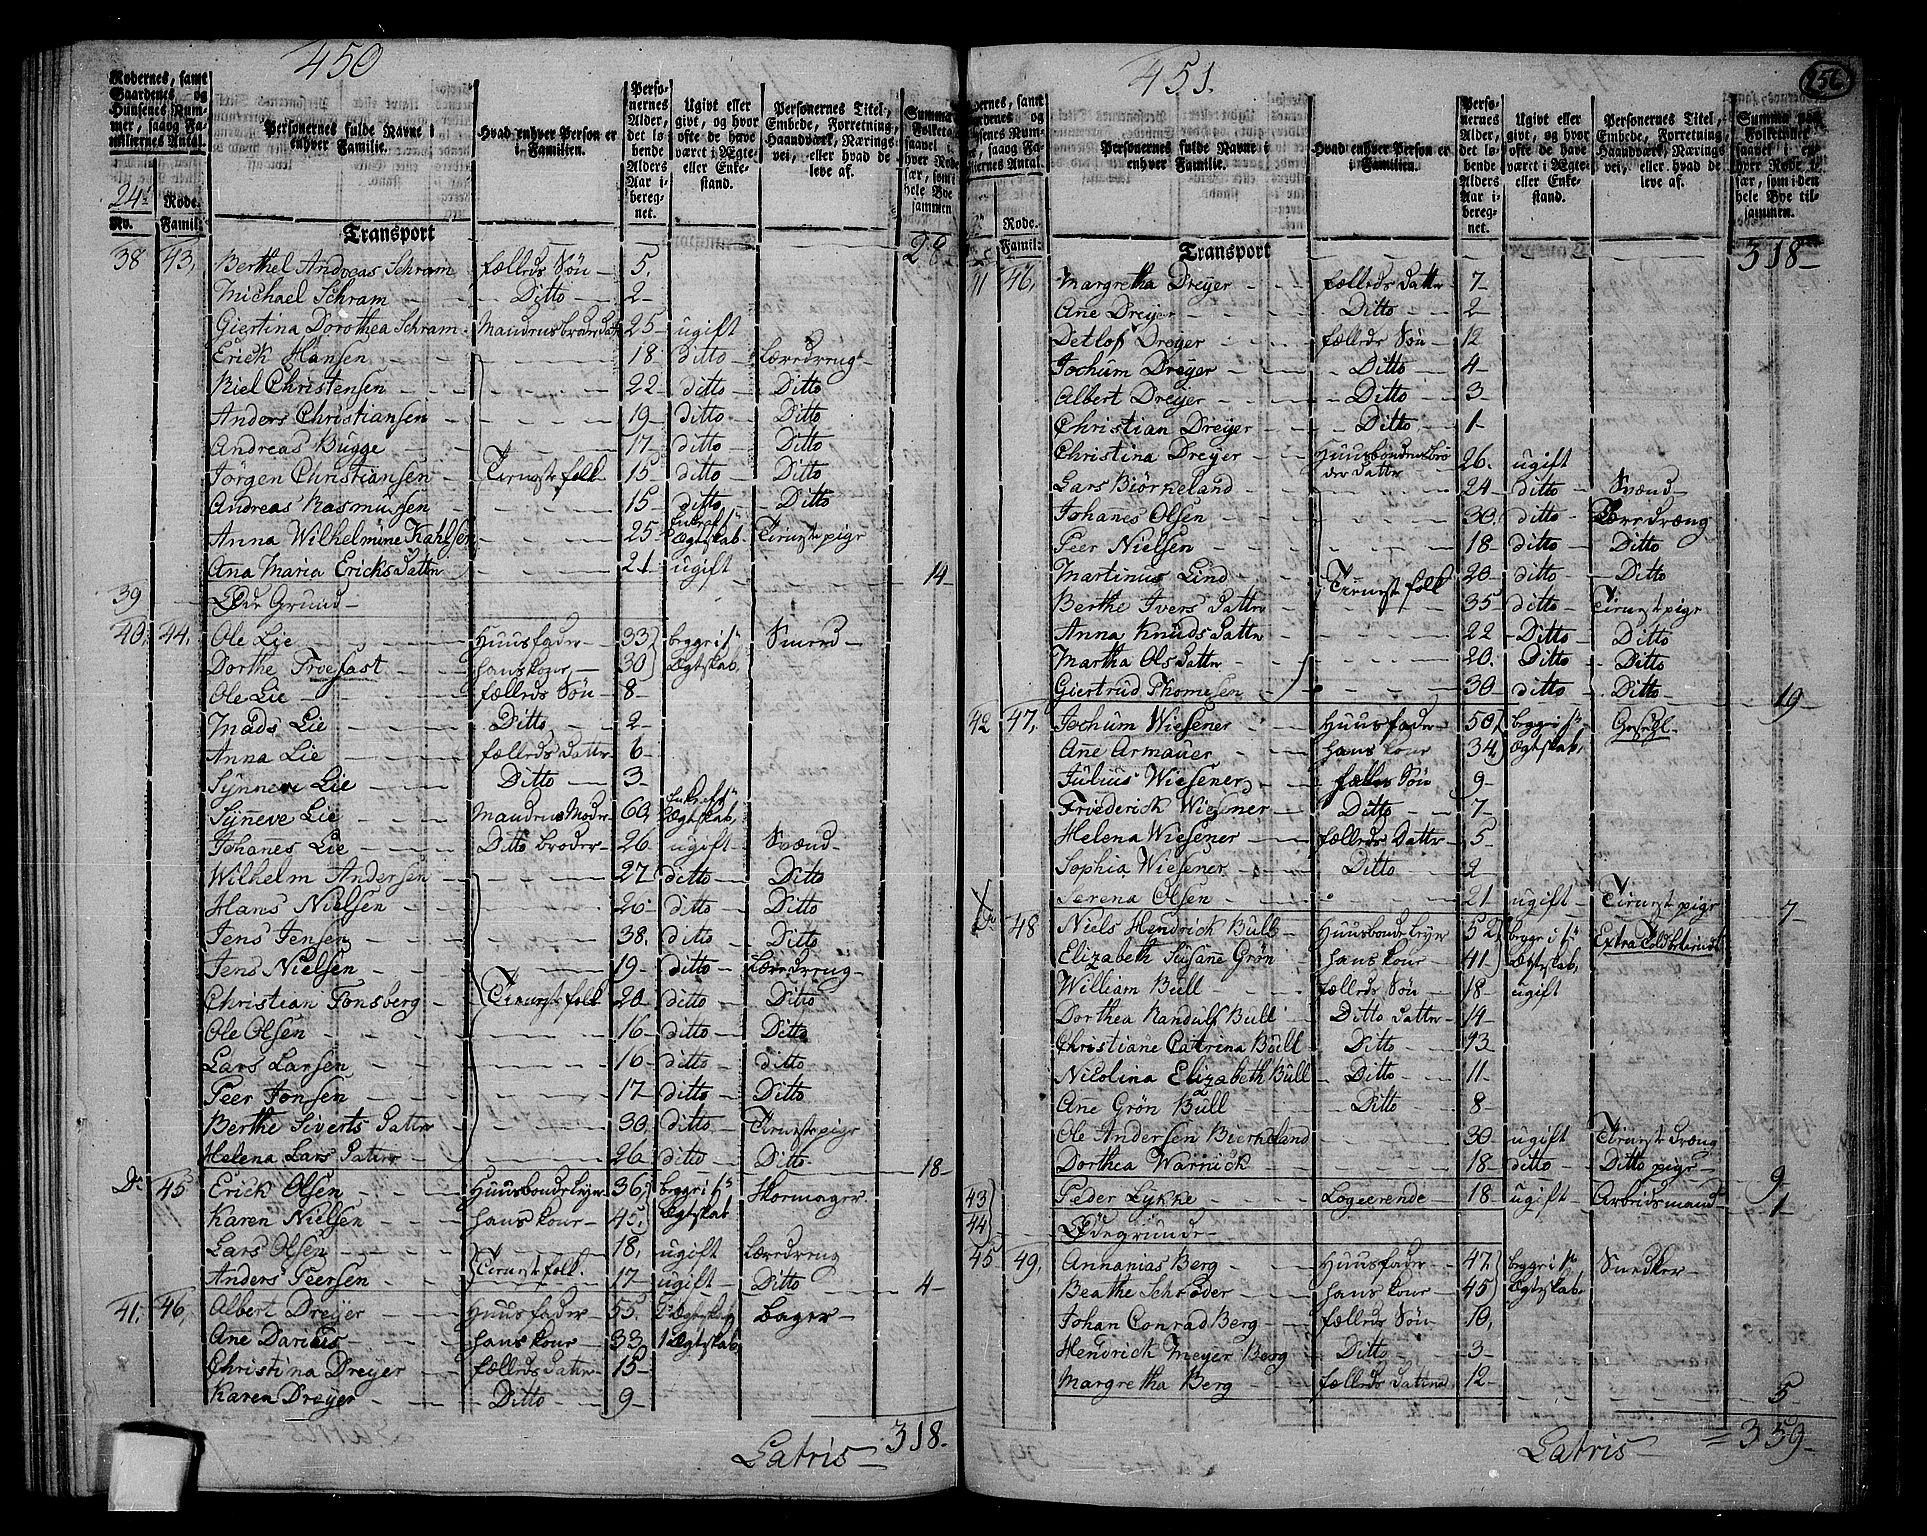 450
Rodernes, samt Gaardenes og Huusenes Nummer, saaog Familiernes Antal.
Personernes fulde Navne i enhver Familie.
Hvad enhver Person er i Familien.
Personernes Alder, det løbende Alders Aar iberegnet.
Ugivt eller givt, og hvor ofte de have været i Ægte- eller Enkestand.
Personernes Titel, Embede, Forretning, Haandværk, Næringsvei, eller hvad de leve af.
24de Rode.
No. Famil:
Transport 28
38 43. Berthel Andreas Schram fælleds Søn 5.
Michael Schram Ditto 2
Giertina Dorothea Schram Mandens broderdatter 25 ugift
Erick Hansen 18 Ditto Læredreng
Niel Christensen 22 ditto Ditto
Anders Christiansen 19 ditto Ditto
Andreas Bugge 17 ditto Ditto
Jörgen Christiansen Tienestefolk 15 ditto Ditto
Andreas Rasmussen 15 ditto Ditto
Anna Wilhelmine Kahlsen 25 Ægteskab Tienestepige
Ana Maria Ericksdatter 21 ugift 14
39 Øde Grund
40. 44. Ole Lie Huusfader 33 begge i 1ste Smeed
Dorthe Troefast hans kone 30 Ægteskab
Ole Lie fælleds Søn 8
Mads Lie Ditto 2
Anna Lie fælleds Datter 6
Synneve Lie Ditto 3
Synneve Lie Mandens Moder 60 Ægteskab
Johanes Lie Ditto broder 26 ugift Svænd
Wilhelm Andersen 27 ditto Ditto
Hans Nielsen 26 ditto Ditto
Jens Jensen 38. ditto Ditto
Jens Nielsen 19 ditto Læredreng
Christian Tonsberg Tienestefolk 20 ditto Ditto
Ole Olsen 16 ditto Ditto
Lars Larsen 16 ditto ditto
Peer Jonsen 17 ditto Ditto
Berthe Siverts Datter 30. ditto Tienestepige
Helena Lars Datter 26 ditto Ditto 18
Do 45 Erick Olsen Huusbonde Leyer 36. begge i 1ste Skomager
Karen Nielsen hans kone 45. Ægteskab
Lars Olsen Tienestefolk 18. ugift Læredreng
Anders Peersen 17 ugift Ditto 4
41. 46. Albert Dreyer Huusfader 55. Ægteskab Bager
Ane Darieis hans kone 33 1 Ægteskab
Christina Dreyer fælleds Datter 15
Karen Dreyer Ditto 9
Latris 318.
451.
256
Personernes fulde Navne i enhver Familie.
Hvad enhver Person er i Familien.
Personernes Alder, det løbende Alders Aar iberegnet.
Ugivt eller givt, og hvor ofte de have været i Ægte- eller Enkestand.
Personernes Titel, Embede, Forretning, Haandværk, Næringsvei, eller hvad de leve af.
Summa paa Folketallet saavel i enhver Rode især, som i den hele Bye tilsammen.
Rode.
Famil:
Transport 318
41 46. Margretha Dreyer fælleds Datter 7
Ane Dreyer Ditto 2
Detlof Dreyer fælleds Søn 12
Jochum Dreyer Ditto 4
Albert Dreyer Ditto 3
Christian Dreyer Ditto 1
Christina Dreyer Huusbondens Broder Datter 26. ugift
Lars Biörkeland 24 ditto Svænd
Johanes Olsen 30. ditto Læredræng
Peer Nielsen 18 ditto Ditto
Martinus Lind Tienestefolk 20 ditto Ditto
Berthe Ivers Datter 35 ditto Tienestepige
Anna Knuds Datter 22 Ditto Ditto
Martha Ols Datter 20. Ditto Ditto
Giertrud Thomesen 30 ditto Ditto 19
42 47. Jochum Wiesener Huusfader 50 begge i 1ste
Ane Armauer hans kone 34 Ægteskab
Julius Wiesener fælles Søn 9
Friederick Wiesener Ditto 7
Helena Wiesener fælleds Datter 5
Sophia Wiesener Ditto 2
Serena Olsen 21 ugift Tieneste pige 7
Do 48 Niels Hendrick Bull Huusbonde Leyer 52 begge i 1ste Extra Toldbetient
Elizabeth Susane Grön hans kone 41 Ægteskab
William Bull fælleds Søn 18 ugift
Dorthea Randulf Bull Ditto Datter 14
Christiane Catrina Bull Ditto 13
Nicolina Elizabeth Bull Ditto 11
Ane Grön Bull Ditto 8
Ole Andersen Bierkeland 30 ugift Tieneste dræng
Dorthea Warnick 18 ditto Ditto pige 9
43 Peder Lykke Logeerende 18 ugift Arbeidsmand 1
44 Ödegrunde
45 49. Annanias Berg Huusfader 47 begge i 1ste Snedker
Beathe Schröder hans kone 45 Ægteskab
Johan Conrad Berg fælleds Søn 10.
Hendrick Meyer Berg Ditto 3
Margretha Berg fælleds Datter 12 5
Latris 359